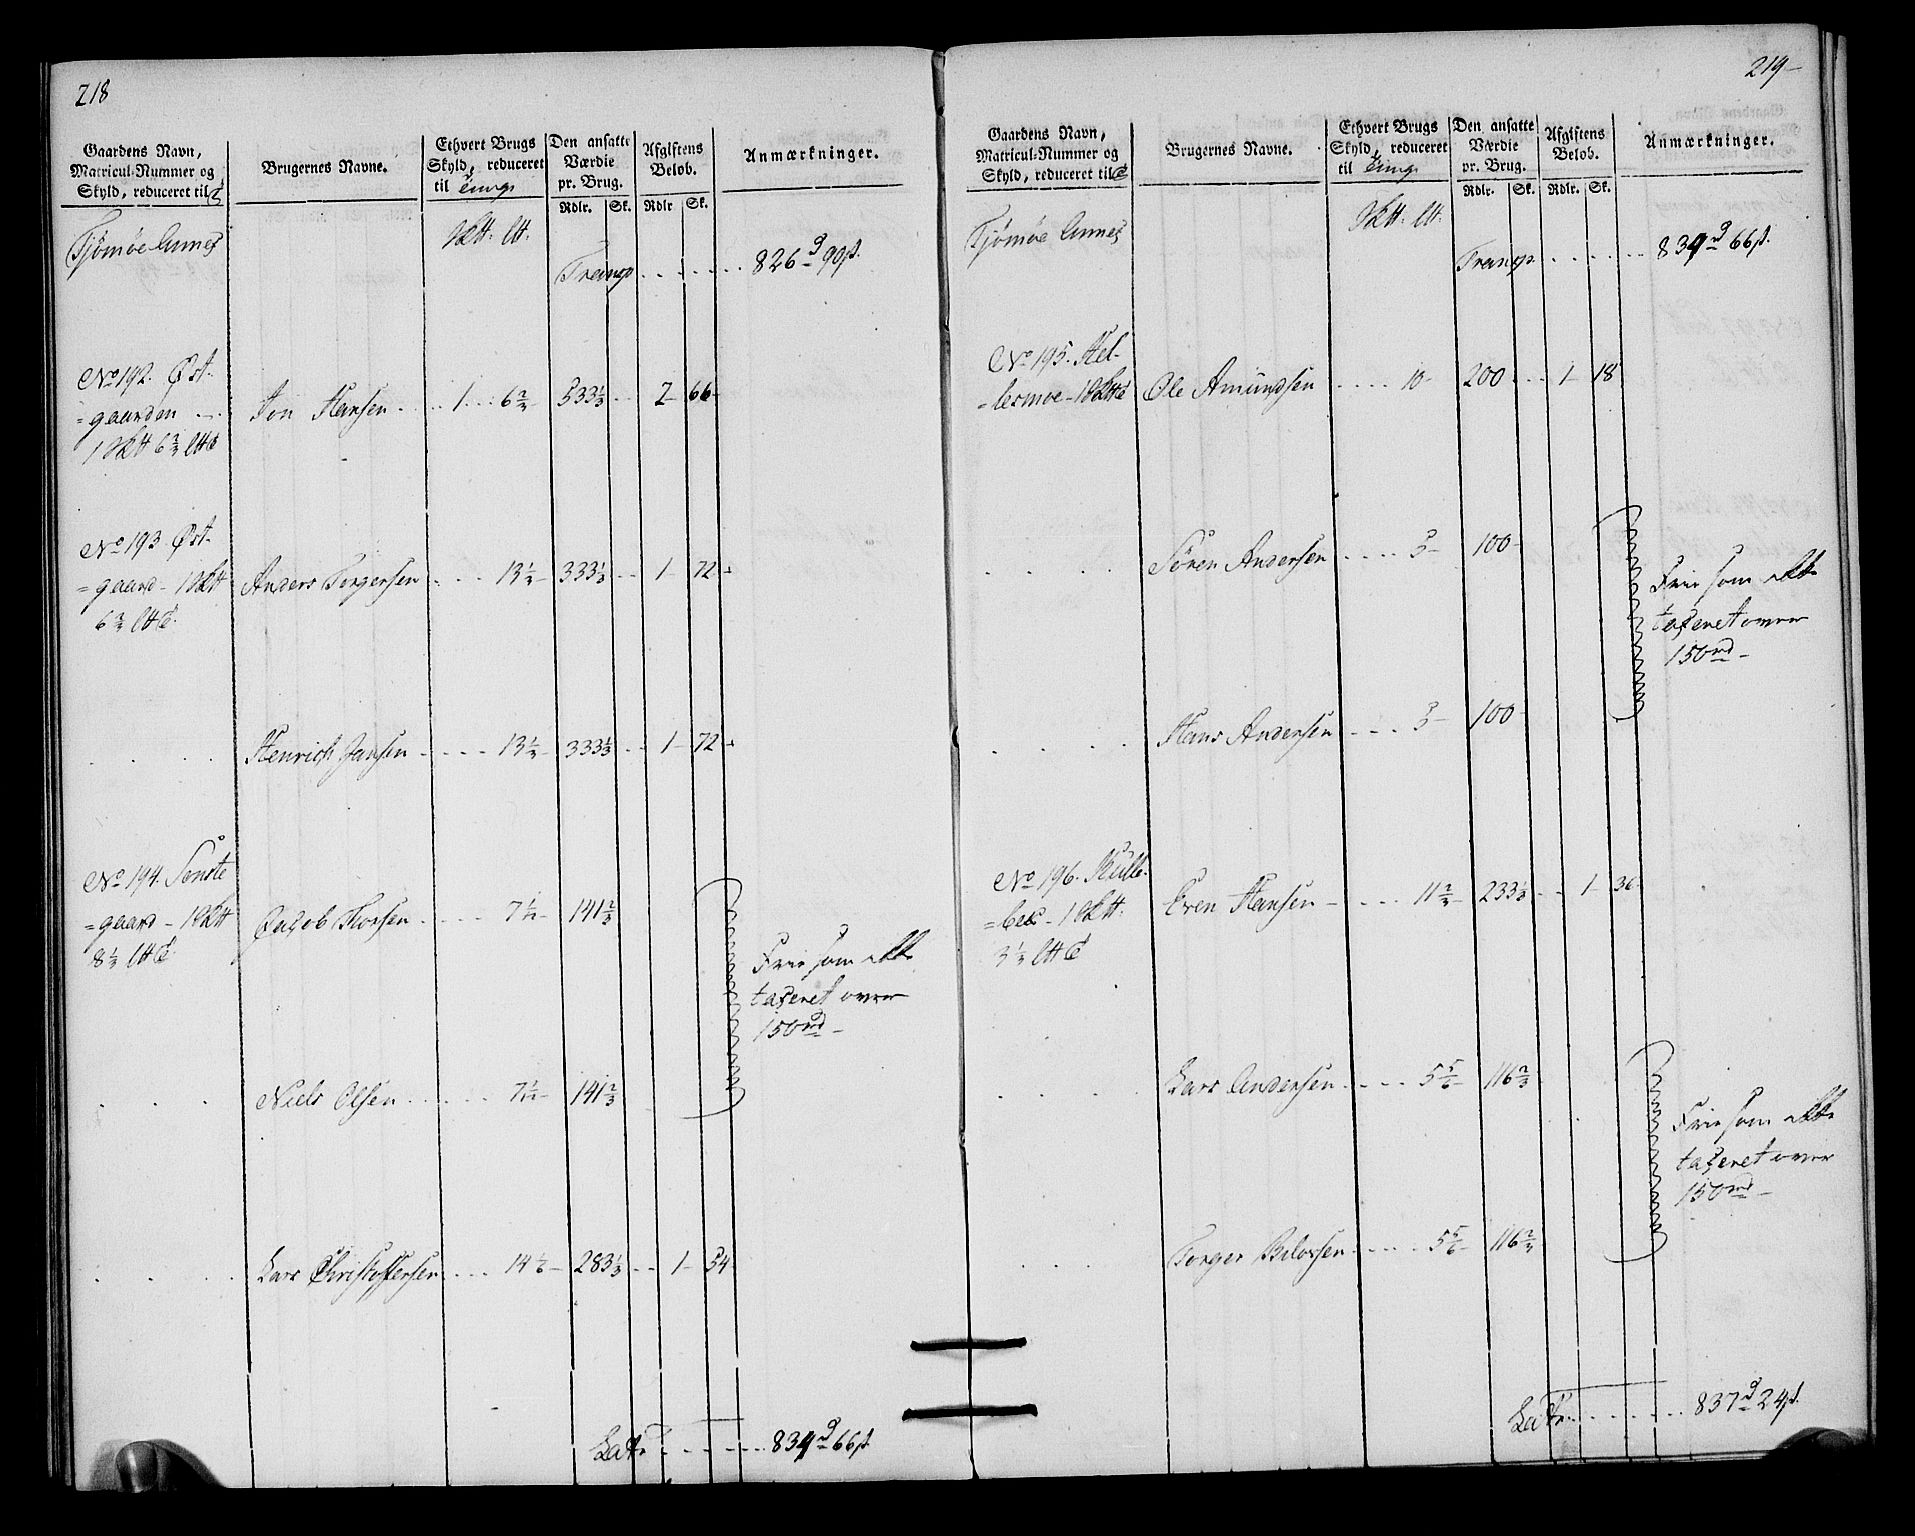 218
Gaardens Navn, Matricul-Nummer og Skyld, reduceret til
Brugernes Navne.
Ethvert Brugs Skyld, reduceret til Tunge
Den ansatte Værdie pr. Brug.
Rdlr. Sk.
Afgiftens Beløb.
Rdlr Sk.
Anmærkninger.
Tjømøe Annex
Transp. . . . . . . 826 90ß.
No 192. Øst-
=gaarden
1 6 2/3
Jon Hansen . . . 1 . . 6 2/3 533 1/3 2 66
No 193. Øst-
=gaard - 1
6 2/3
Anders Torgersen . . . 13 1/3 333 1/3 1 72
Henrich Jansen . . . 13 1/3 333 1/3 1 72
No 194. Sønste
=gaard - 1
8 1/3
Jacob Thorsen . . . 7 1/12 141 2/3
Frie som ikke
taxeret over
150rd
Niels Olsen . . . 7 1/12 141 2/3
Lars Christoffersen . . . 14 1/6 283 1/3 1 54
Latr. . . . . . . 834 66ß
219
Gaardens Navn, Matricul-Nummer og Skyld, reduceret til
Brugernes Navne.
Ethvert Brugs Skyld, reduceret til Tunge
Den ansatte Værdie pr. Brug.
Rdlr. Sk.
Afgiftens Beløb.
Rdlr. Sk.
Anmærkninger.
Tjømøe Annex
Transp. . . . . . 834 66ß.
No 195. Hel-
=lesmoe - 1
Ole Amundsen . . . . 10 200 1 18
Søren Andersen . . . . 5 100
Frie som ikke
taxeret over
150rd
Hans Andersen . . . 5 100
No 196. Kulle-
=bek - 1
3 1/3
Even Hansen . . . . 11 2/3 233 1/3 1 36
Lars Andersen . . . . 5 5/6 116 2/3
Frie som ikke
taxeret over
150rd
Torger . . . . 5 5/6 116 2/3
Latr. . . . . . . 837 24ß.